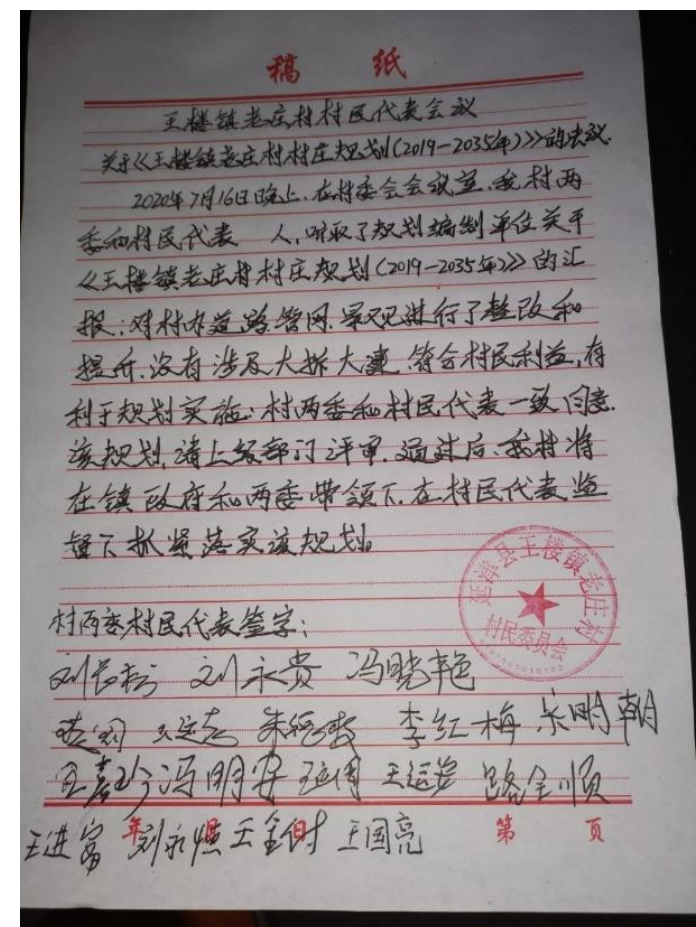 稿 纸
王楼镇老庄村村民代表会议
关于《王楼镇老庄村村庄规划(2019-2035年)》的决议.
2020年7月16日晚上，在村委会会议室，我村两
委和村民代表 人，听取了规划编制单位关于
《王楼镇老庄村村庄规划(2019-2035年)》的汇
报；对村内道路管网、景观进行了整改和
提升，没有涉及大拆大建，符合村民利益，有
利于规划实施；村两委和村民代表一致同意
该规划，请上级部门评审，通过后，我村将
在镇政府和两委带领下，在村民代表监
督下抓紧落实该规划。
延津县王楼镇老庄村
村民委员会
村两委村民代表签字：
刘永贵 冯晓艳
李红梅
冯明安 路全顺
王进富 王国亮
年 月 日 第 页